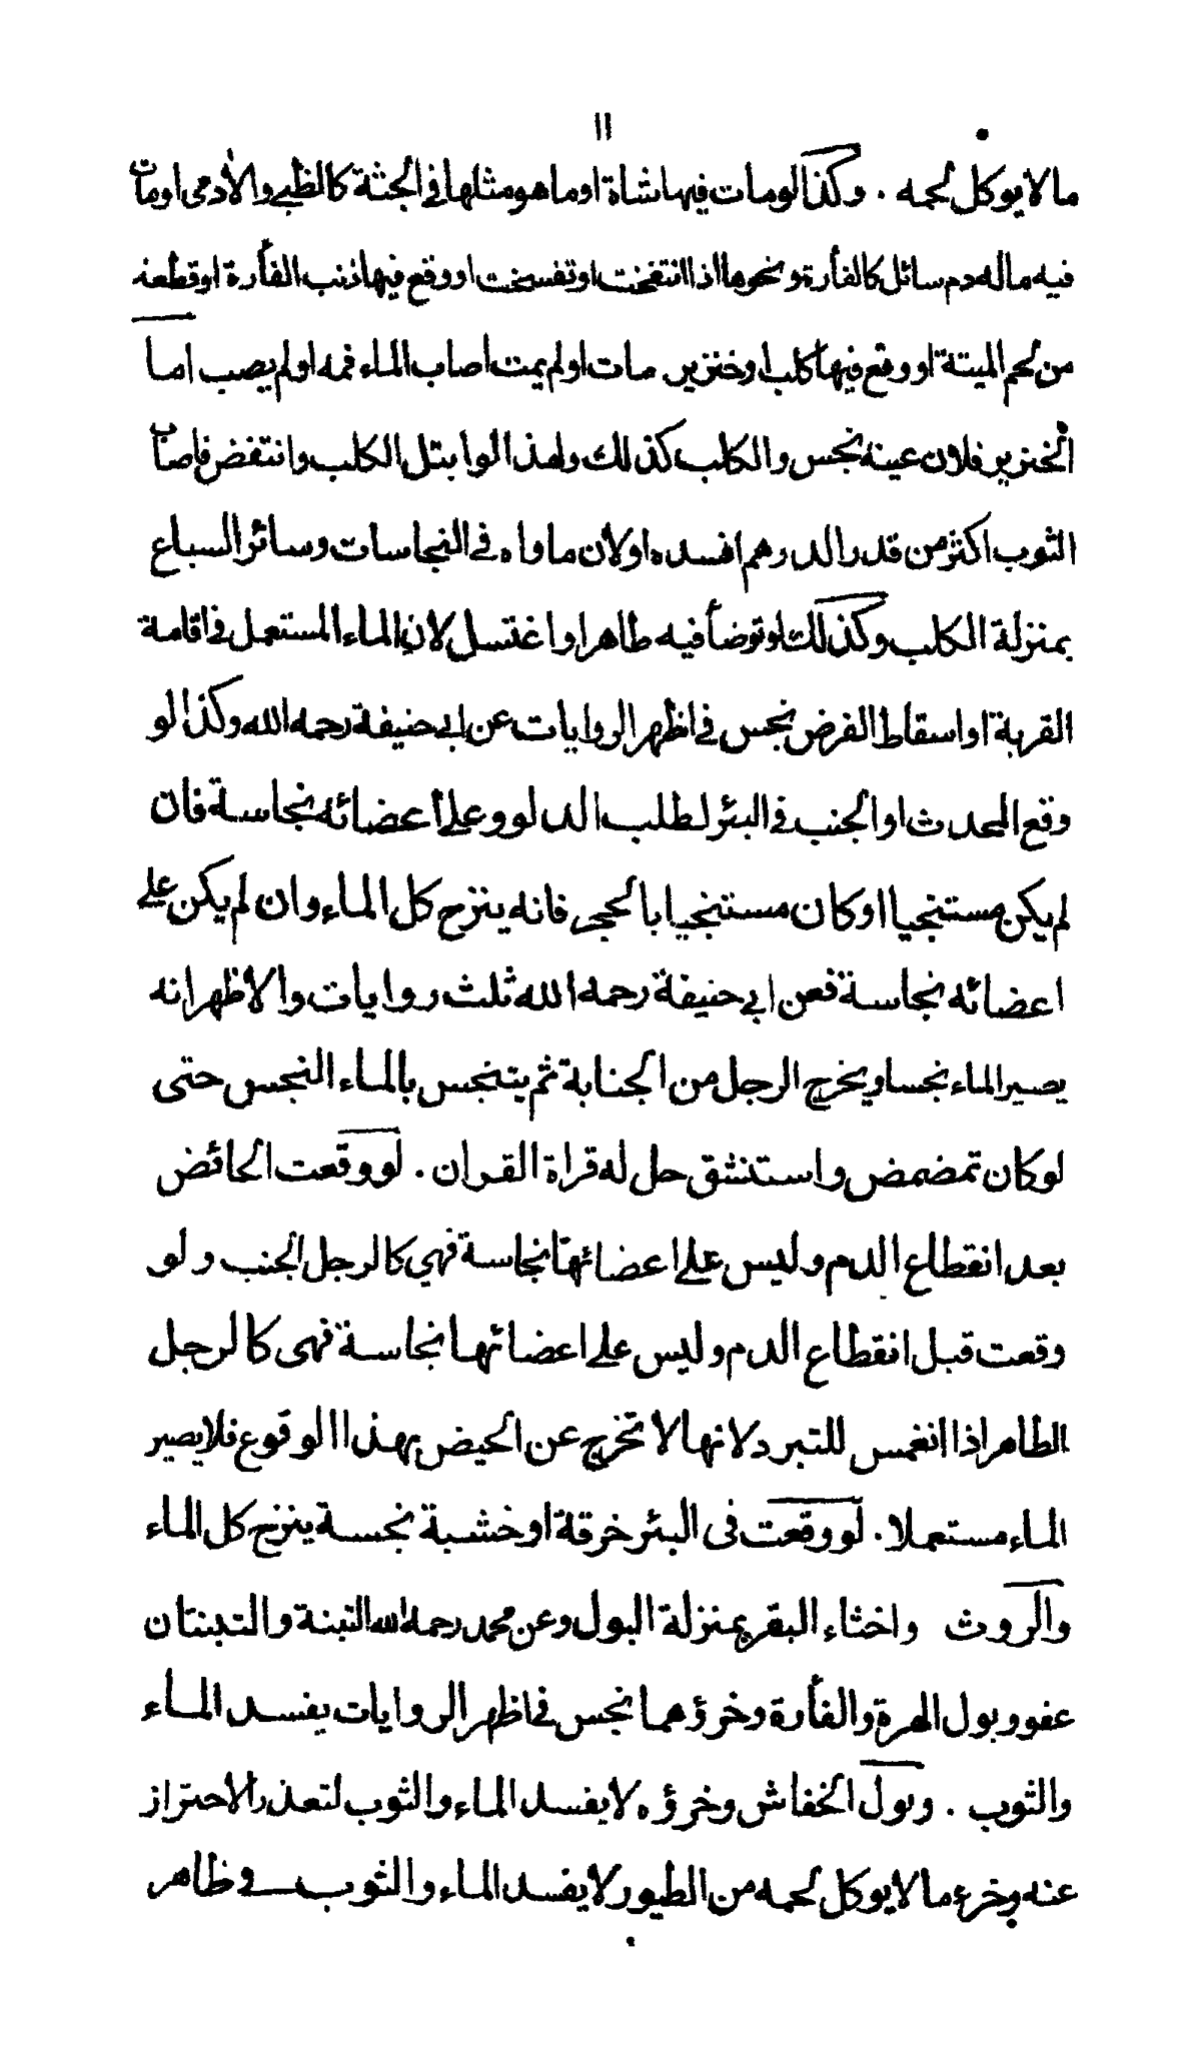 ١١
ما لا يوكل لحمه . وكذا لو مات فيها شاة او ما هو مثلها في الجثة كالظبي والآدمى او مات
فيه ماله دم سائل كالفأرة ونحوها اذا انتفخت او تفسخت او وقع فيها ذنب الفأرة او قطعة
من لحم الميتة او وقع فيها كلب او خنزير مات او لم يمت اصاب الماء فمه او لم يصب اما
الخنزير فلان عينه نجس والكلب كذلك ولهذا لوا بتل الكلب وانتفض فاصاب
الثوب اكثر من قدر الدرهم افسده او لان ماواه في النجاسات وسائر السباع
بمنزلة الكلب وكذلك لو توضأ فيه طاهر او اغتسل لان الماء المستعمل في اقامة
القربة او اسقاط الفرض نجس في اظهر الروايات عن ابي حنيفة رحمه الله وكذا لو
وقع المحدث او الجنب في البئر لطلب الدلو وعلى أعضائه نجاسة فان
لم يكن مستنجيا او كان مستنجيا بالحجر فانه ينزح كل الماء وان لم يكن على
اعضائه نجاسة فعن ابي حنيفة رحمه الله ثلث روايات والاظهر انه
يصير الماء نجسا ويخرج الرجل من الجنابة ثم يتنجس بالماء النجس حتى
لو كان تمضمض واستنشق حل له قراة القران . لو وقعت الحائض
بعد انقطاع الدم وليس على اعضائها نجاسة فهي كالرجل الجنب ولو
وقعت قبل انقطاع الدم وليس على اعضائها نجاسة فهى كالرجل
الطاهر اذا انغمس للتبرد لانها لا تخرج عن الحيض بهذا الوقوع فلا يصير
الماء مستعملا . لو وقعت فى البئر خرقة او خشبة نجسة ينزح كل الماء
والروث واخثاء البقر بمنزلة البول وعن محمد رحمه الله التبنة والتبنتان
عفو وبول الهرة والفأرة وخرؤهما نجس في اظهر الروايات يفسد الماء
والثوب . وبول الخفاش وخرؤه لا يفسد الماء والثوب لتعذر الاحتراز
عنه وخرء ما لا يوكل لحمه من الطيور لا يفسد الماء والثوب في ظاهر